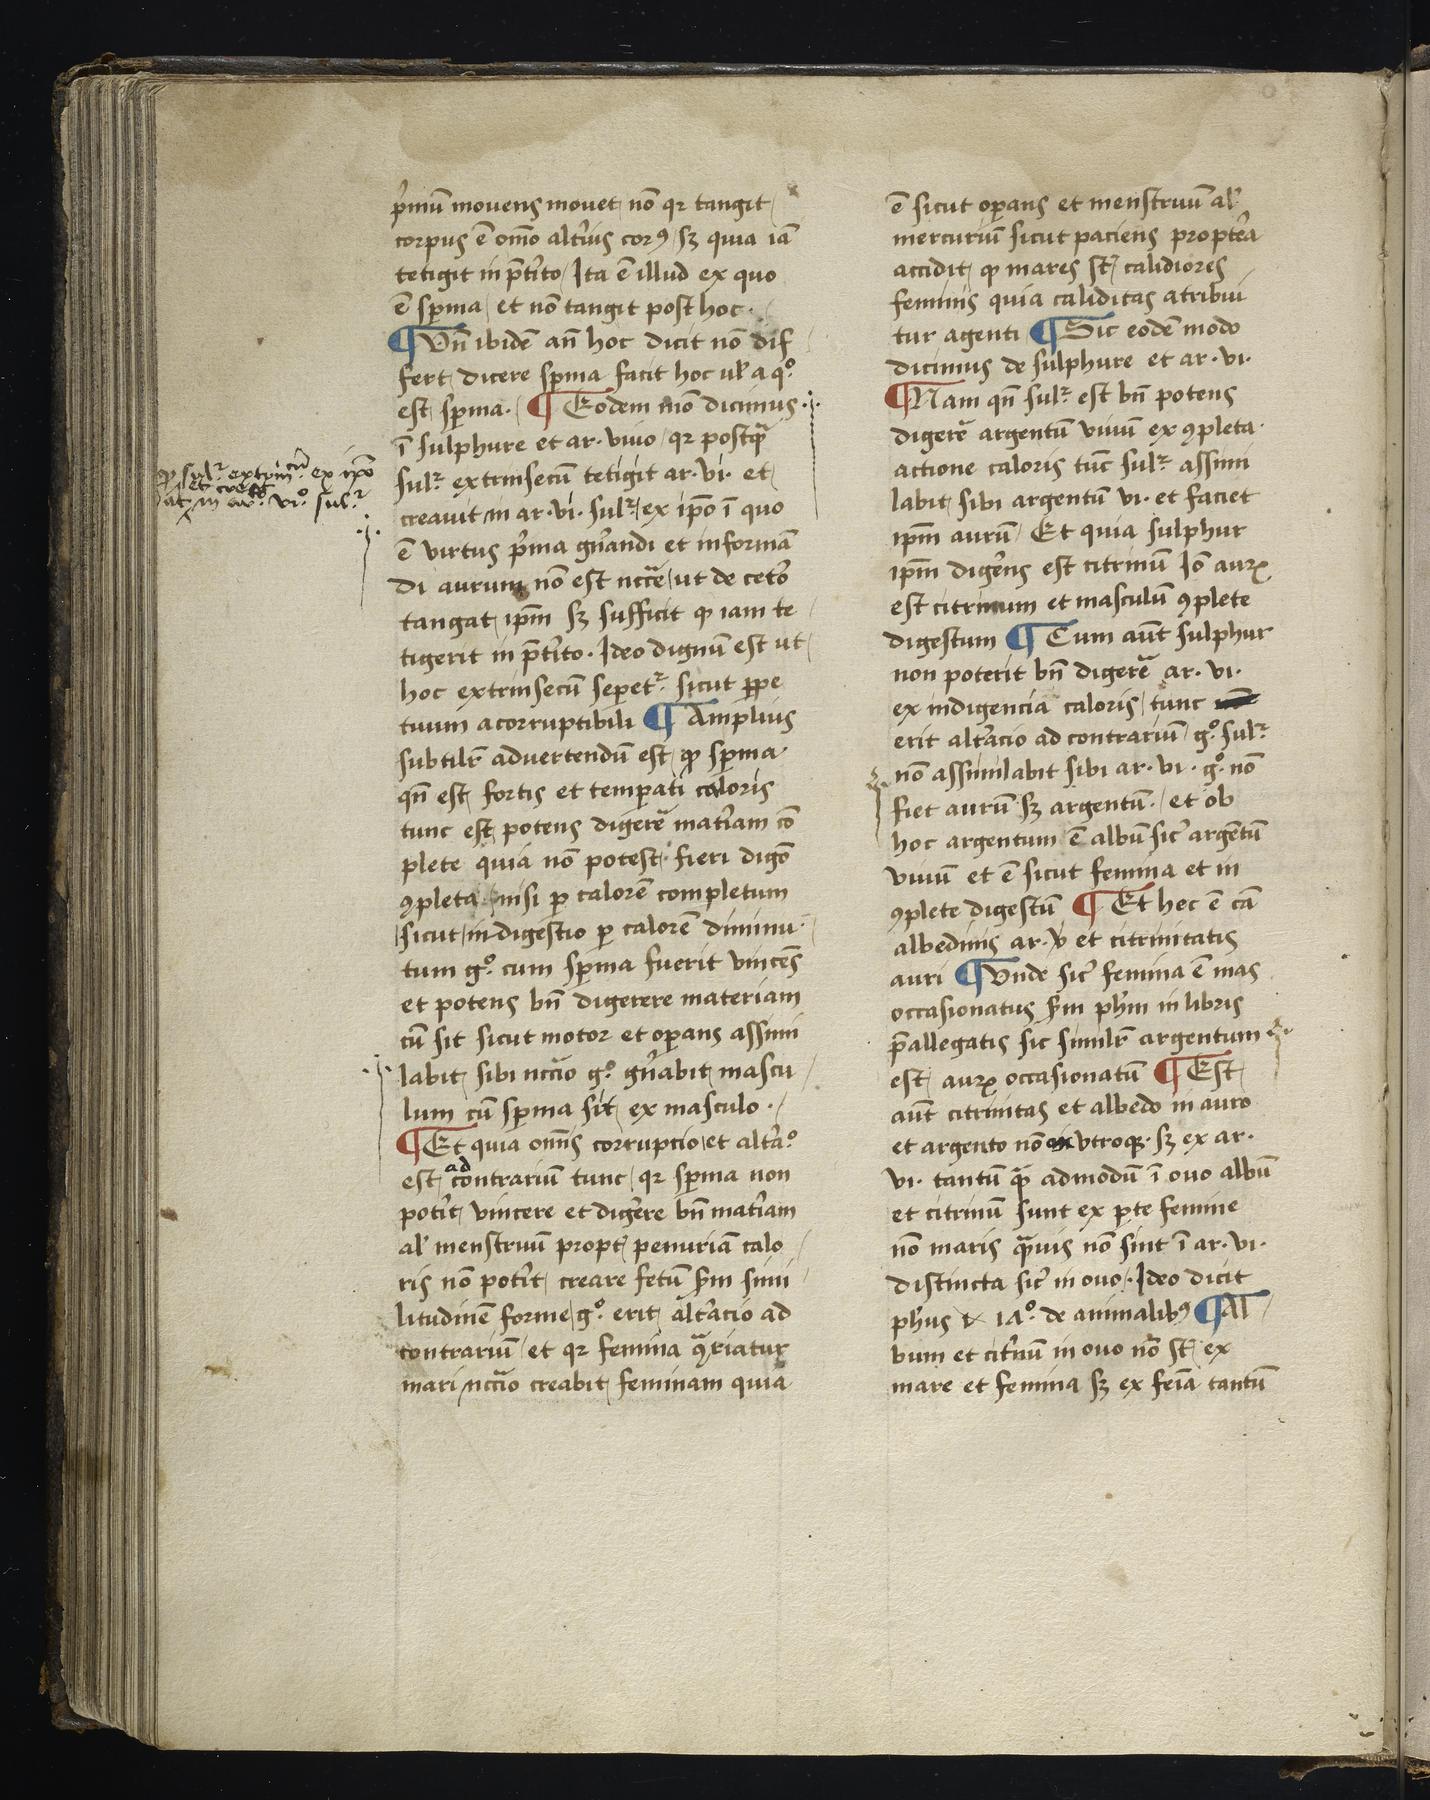 p̉mū movens movet nō qꝛ tangit
corpus ē om̄o alt̉ius corꝰ sꝫ quia iā
tetigit in p̄t̉ito Ita ē illud ex quo
ē sp̲ma et nō tangit post hoc.
¶ Vn̄ ibidē an̄ hoc dicit nō dif
fert dicere sp̲ma facit hoc ul̉ a qͦ
est sp̲ma. ¶ Eodem mō dicimus
ī sulphure et ar. vivo qꝛ postq̄
sulꝛ extrinsecū tetigit ar. vi. et
creavit in ar. vi. sulꝛ ex ip̄o ī quo
ē virtus p̉ma gn̉andi et informā
di aurum nō est ncc̄e ut de cet̉o
tangat ip̄m sꝫ sufficit ꝙ iam te
tigerit in p̄t̉ito. Ideo dignū est ut
hoc extrinsecū sep̲etꝛ sicut p̲pe
tuum a corruptibili ¶ Amplius
subtilr̉ advertendū est ꝙ sp̲ma
qn̄ est fortis et temp̲ati caloris
tunc est potens digerē mat̉iam cō
plete quia nō potest fieri digō
ꝯpleta nisi p̲ calorē completum
sicut indigestio p̲ calorē diminu
tum gͦ. cum sp̲ma fuerit vincēs
et potens bn̄ digerere materiam
cū sit sicut motor et op̲ans assimi
labit sibi ncc̄io gͦ. gn̉abit mascu
lum cū sp̲ma sit ex masculo.
¶ Et quia om̄is corrupcio et alt̉aͦ
est ad contrariū tunc qꝛ sp̲ma non
pot̉it vincere et dig̉ere bn̄ mat̉iam
al̉ menstruū propt̉ penuriā calo
ris nō pot̉it creare fetū s̄m simi
litudinē forme gͦ. erit alt̉acio ad
contrariū et qꝛ femina ꝯ̄triatur
mari ncc̄io creabit feminam quia
ꝙ sulꝛ extrinᵐ. cū ex ip̄o
et creat
at in arᵗᵒ. viͦ. sulꝛ
ē sicut op̲ans et menstruū al̉
mercuriū sicut paciens propterea
accidit ꝙ mares st̄ calidiores
feminis quia caliditas atribui
tur agenti ¶ Sic eodē modo
dicimus de sulphure et ar. vi.
¶ Nam qn̄ sulꝛ est bn̄ potens
digerē argentū vivū ex ꝯpleta
actione caloris tūc sulꝛ assimi
labit sibi argentū vi. et faciet
ip̄m aurū Et quia sulphur
ip̄m dig̉ens est citrinū Iō auꝝ
est citrinum et masculū ꝯplete
digestum ¶ Cum aūt sulphur
non poterit bn̄ digerē ar. vi.
ex indigencia caloris tunc
erit alt̉acio ad contrariū gͦ. sulꝛ
nō assimilabit sibi ar. vi. gͦ. nō
fiet aurū sꝫ argentū. et ob
hoc argentum ē albū sic̉ argētū
vivū et ē sicut femina et in
ꝯplete digestū ¶ Et hec ē cā
albedinis ar. v̉ et citrinitatis
auri ¶ Vnde sic̉ femina ē mas
occasionatus s̄m ph̄m in libris
p̄allegatis sic similr̉ argentum
est auꝝ occasionatū ¶ Est
aūt citrinitas et albedo in auro
et argento nō ex vtroqꝫ sꝫ ex ar.
vi. tantū q̄ admodū ī ovo albū
et citrinū sunt ex p̲te femine
nō maris q̄vis nō sint ī ar. vi.
distincta sic̉ in ovo. Ideo dicit
ph̉us 14ͦ. de animalibꝰ ¶ Al
bum et cit̉nū in ovo nō st̄ ex
mare et femina sꝫ ex feīa tantū